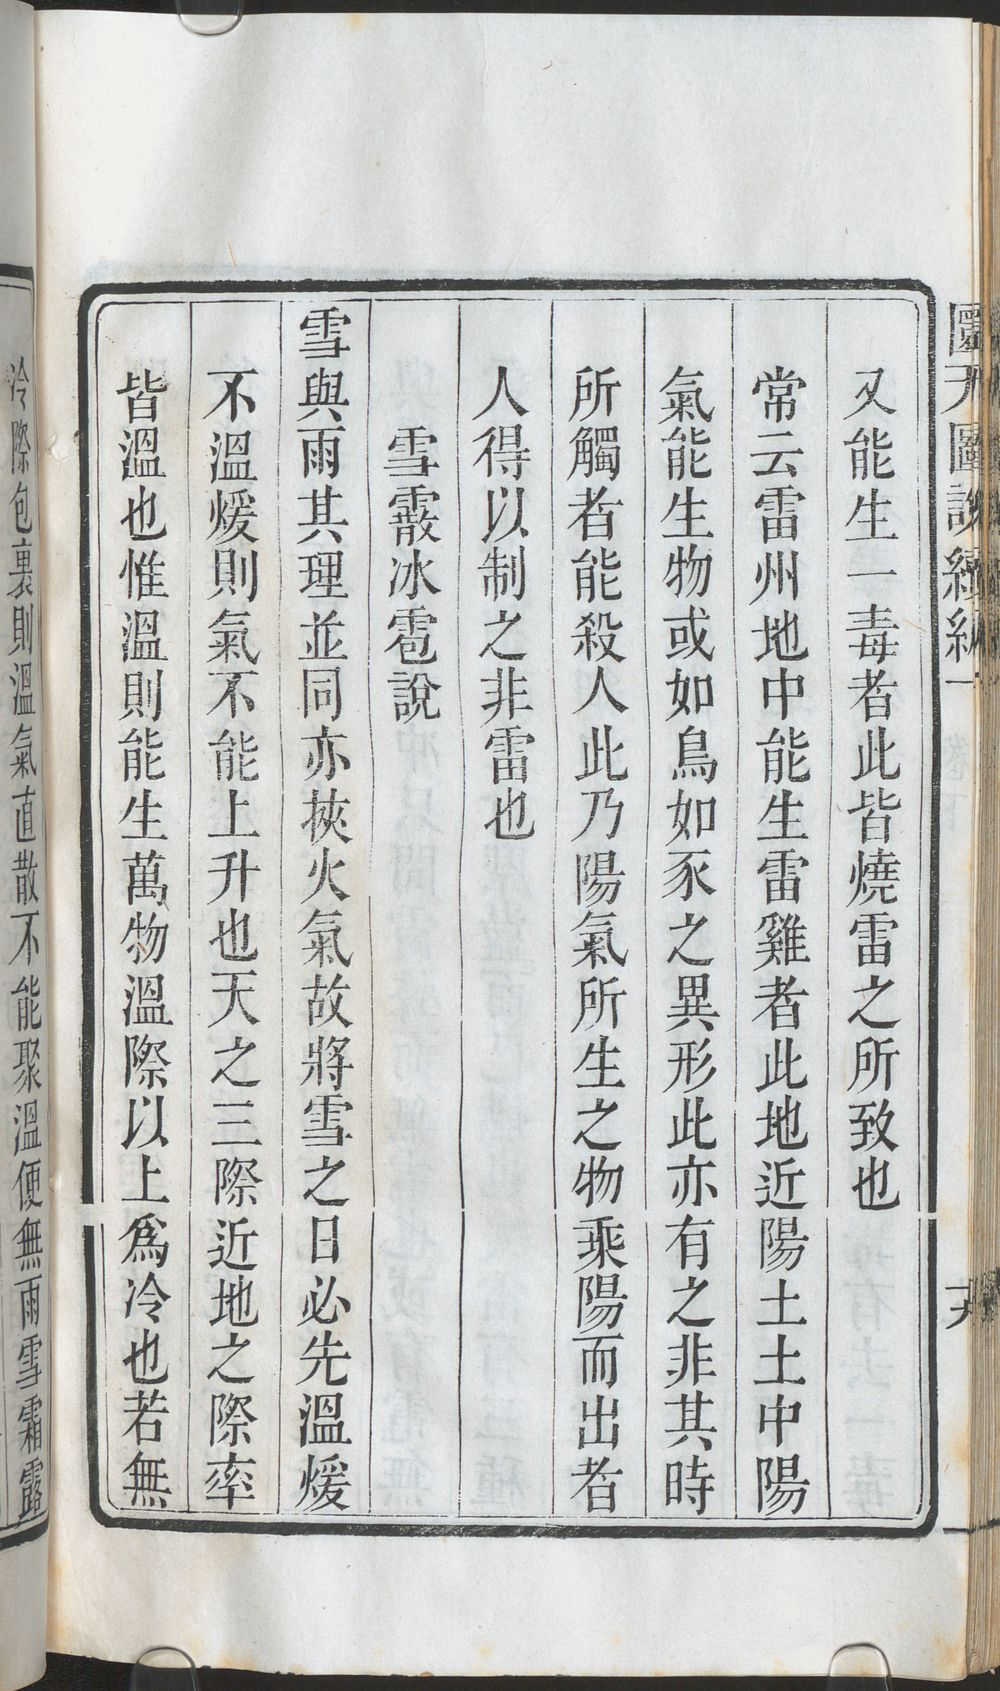 圜天圖說續編一
十六
又能生一毒者此皆燒雷之所致也
常云雷州地中能生雷雞者此地近陽土土中陽
氣能生物或如鳥如豕之異形此亦有之非其時
所觸者能殺人此乃陽氣所生之物乘陽而出者
人得以制之非雷也
雪霰冰雹說
雪與雨其理並同亦挾火氣故將雪之日必先溫煖
不溫煖則氣不能上升也天之三際近地之際率
皆溫也惟溫則能生萬物溫際以上爲冷也若無
冷際包裏則溫氣直散不能聚溫便無雨雪霜露